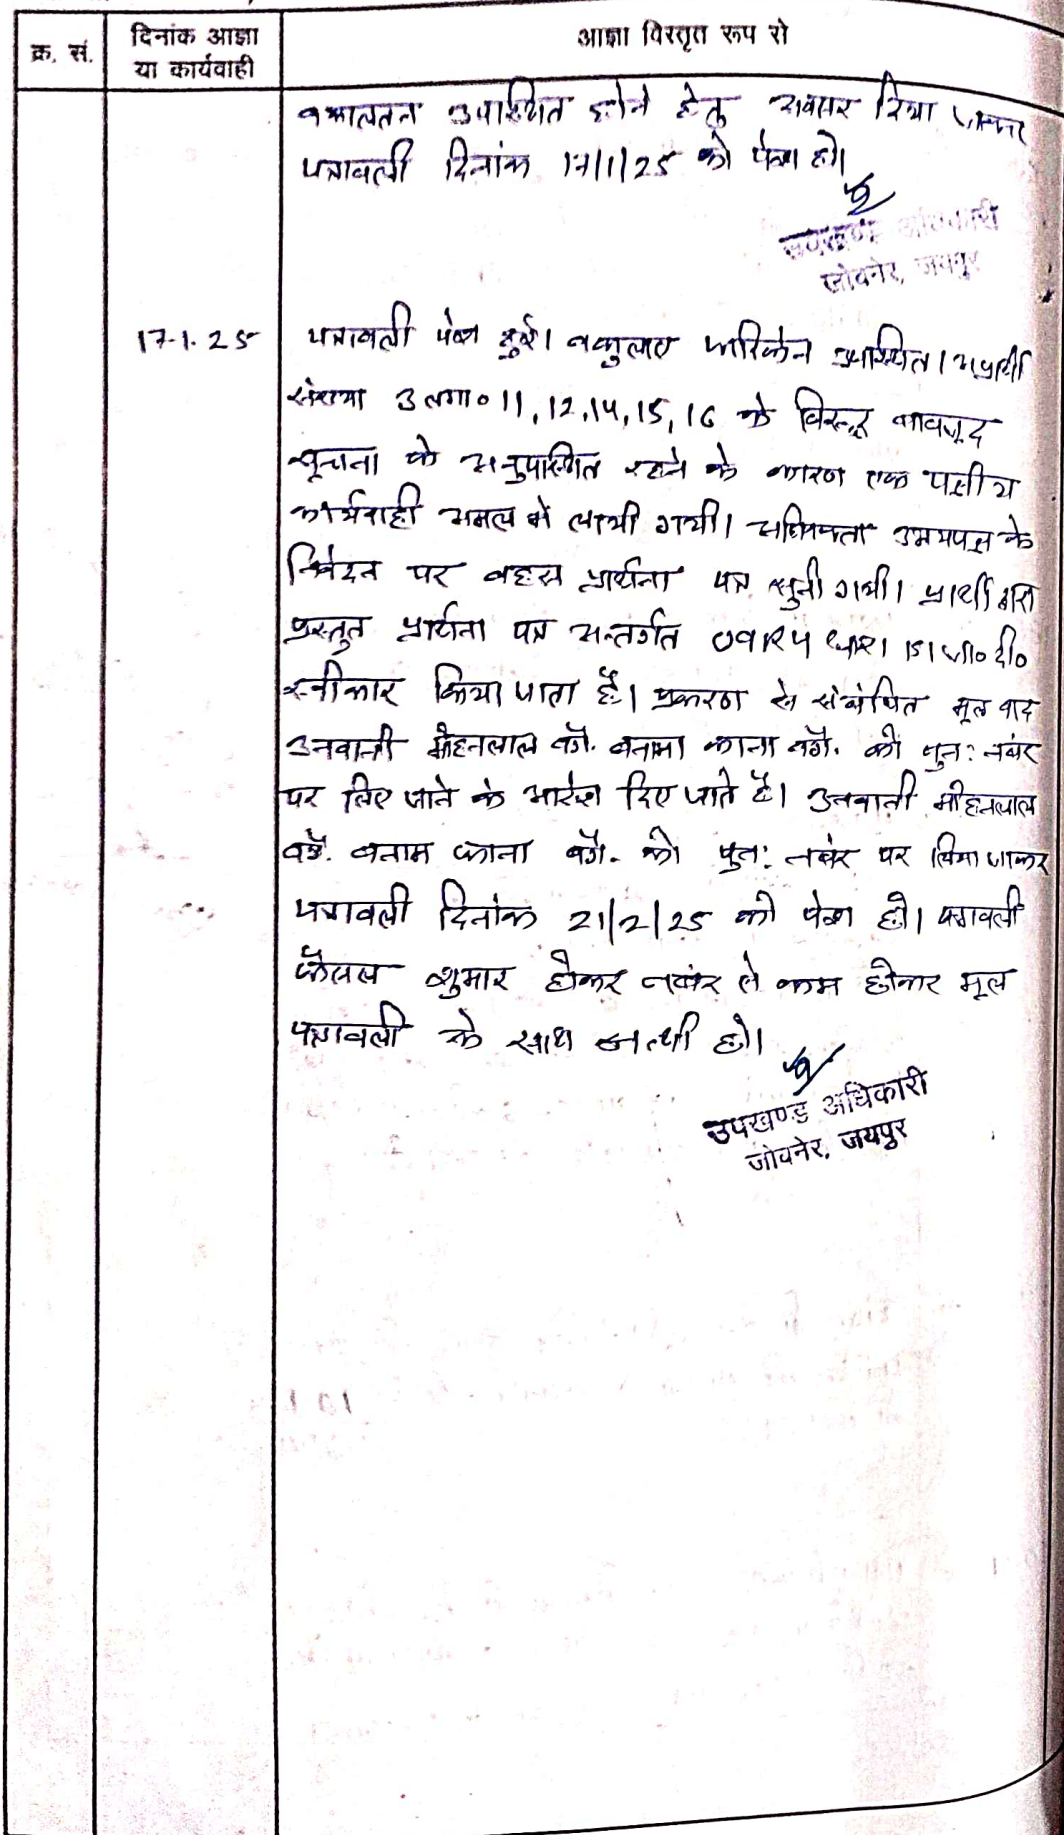 क्र. सं.
दिनांक आज्ञा
या कार्यवाही
आज्ञा विस्तृत रूप से
वकालतन उपस्थित होने हेतु अवसर दिया जाकर
पत्रावली दिनांक 17/1/25 को पेश हो।
उपखण्ड अधिकारी
जोबनेर, जयपुर
17.1.25
पत्रावली पेश हुई। वकुलाए फरिकेन उपस्थित। अप्रार्थी
संख्या 3 लगा० 11, 12, 14, 15, 16 के विरूद्ध बावजूद
सूचना के अनुपस्थित रहने के कारण एक पक्षीय
कार्यवाही अमल में लायी गयी। अधिवक्ता उभयपक्ष के
निवेदन पर बहस प्रार्थना पत्र सुनी गयी। प्रार्थी द्वारा
प्रस्तुत प्रार्थना पत्र अन्तर्गत धारा 151 जा० दी०
स्वीकार किया जाता है। प्रकरण से संबंधित मूल वाद
उनवानी मोहनलाल वगै. बनाम काना वगै. को पुन: नम्बर
पर लिए जाने के आदेश दिए जाते है। उनवानी मोहनलाल
वगै. बनाम काना वगै. को पुन: नम्बर पर लिया जाकर
पत्रावली दिनांक 21/2/25 को पेश हो। पत्रावली
फैसल शुमार होकर नम्बर से कम होकर मूल
पत्रावली के साथ नत्थी हो।
उपखण्ड अधिकारी
जोबनेर, जयपुर